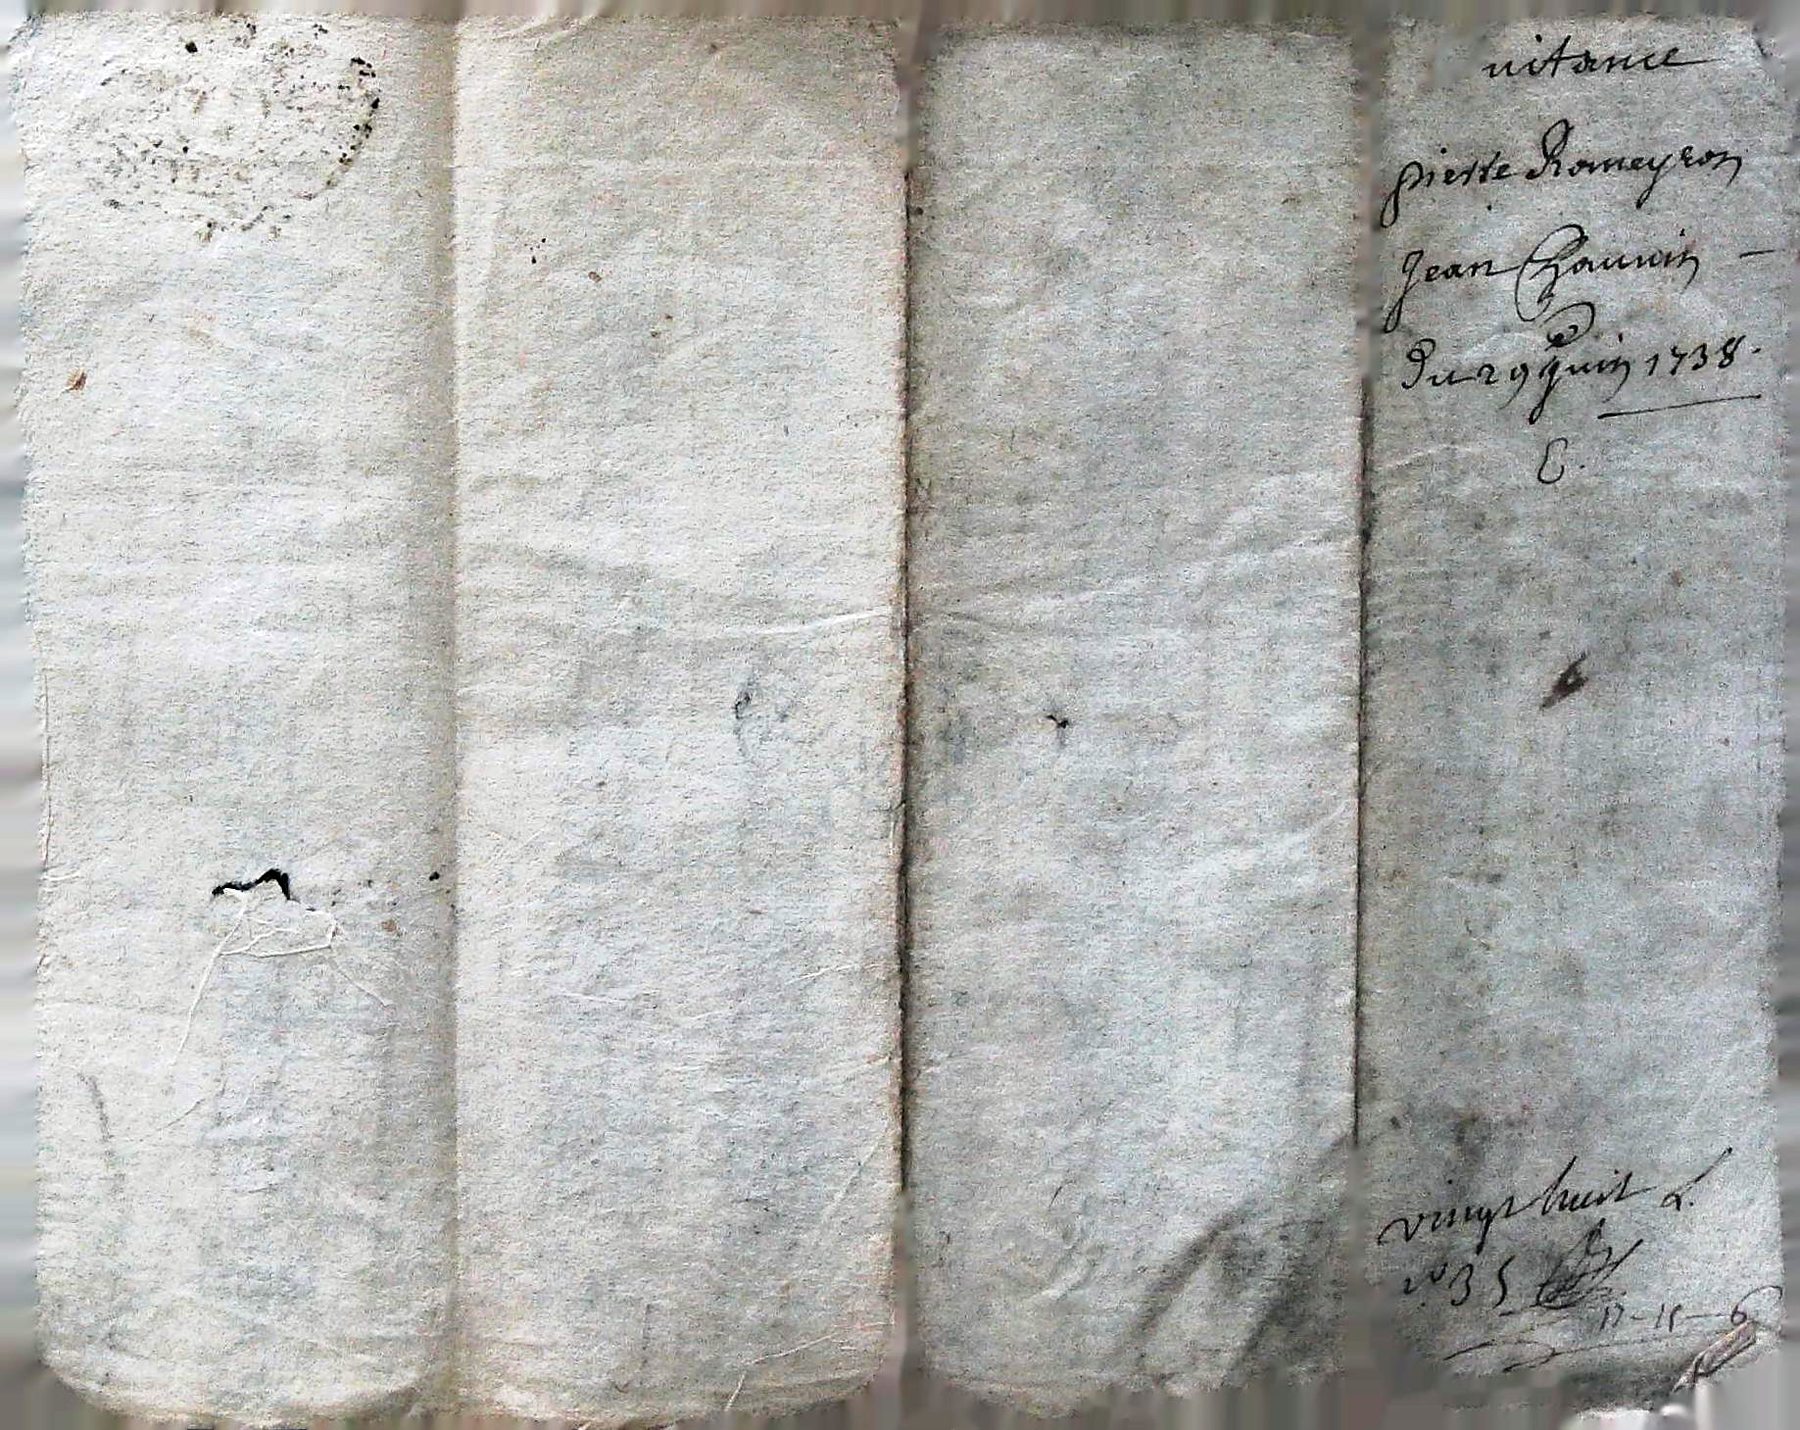 uitance
pierre Romeyron
Jean Chauvin -
Du 29 Juin 1738.
E.
vingt huit L.
n.º 35
17-15-6